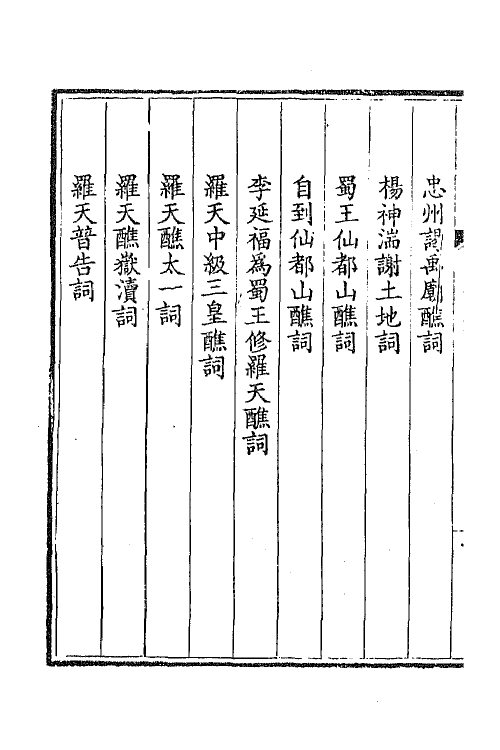 忠州謁禹廟醮詞
楊神湍謝土地詞
蜀王仙都山醮詞
自到仙都山醮詞
李延福爲蜀王修羅天醮詞
羅天中級三皇醮詞
羅天醮太一詞
羅天醮嶽瀆詞
羅天普告詞